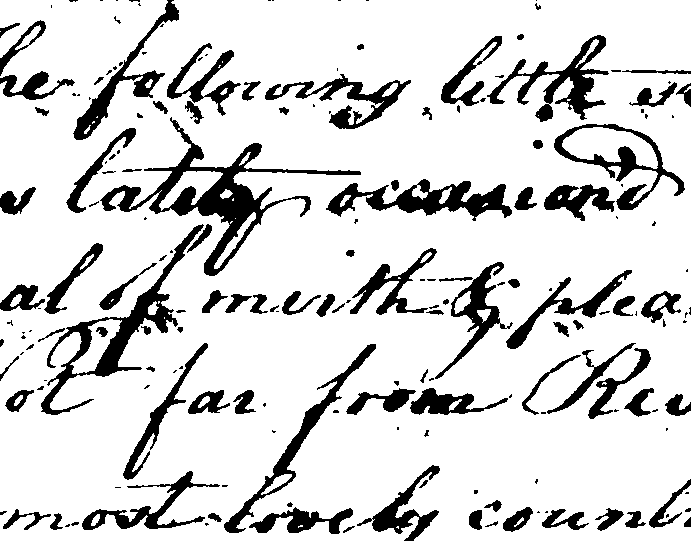 he following little
s lately occasion'd
al of mirth & plea
ot far from Rev
most lovely count